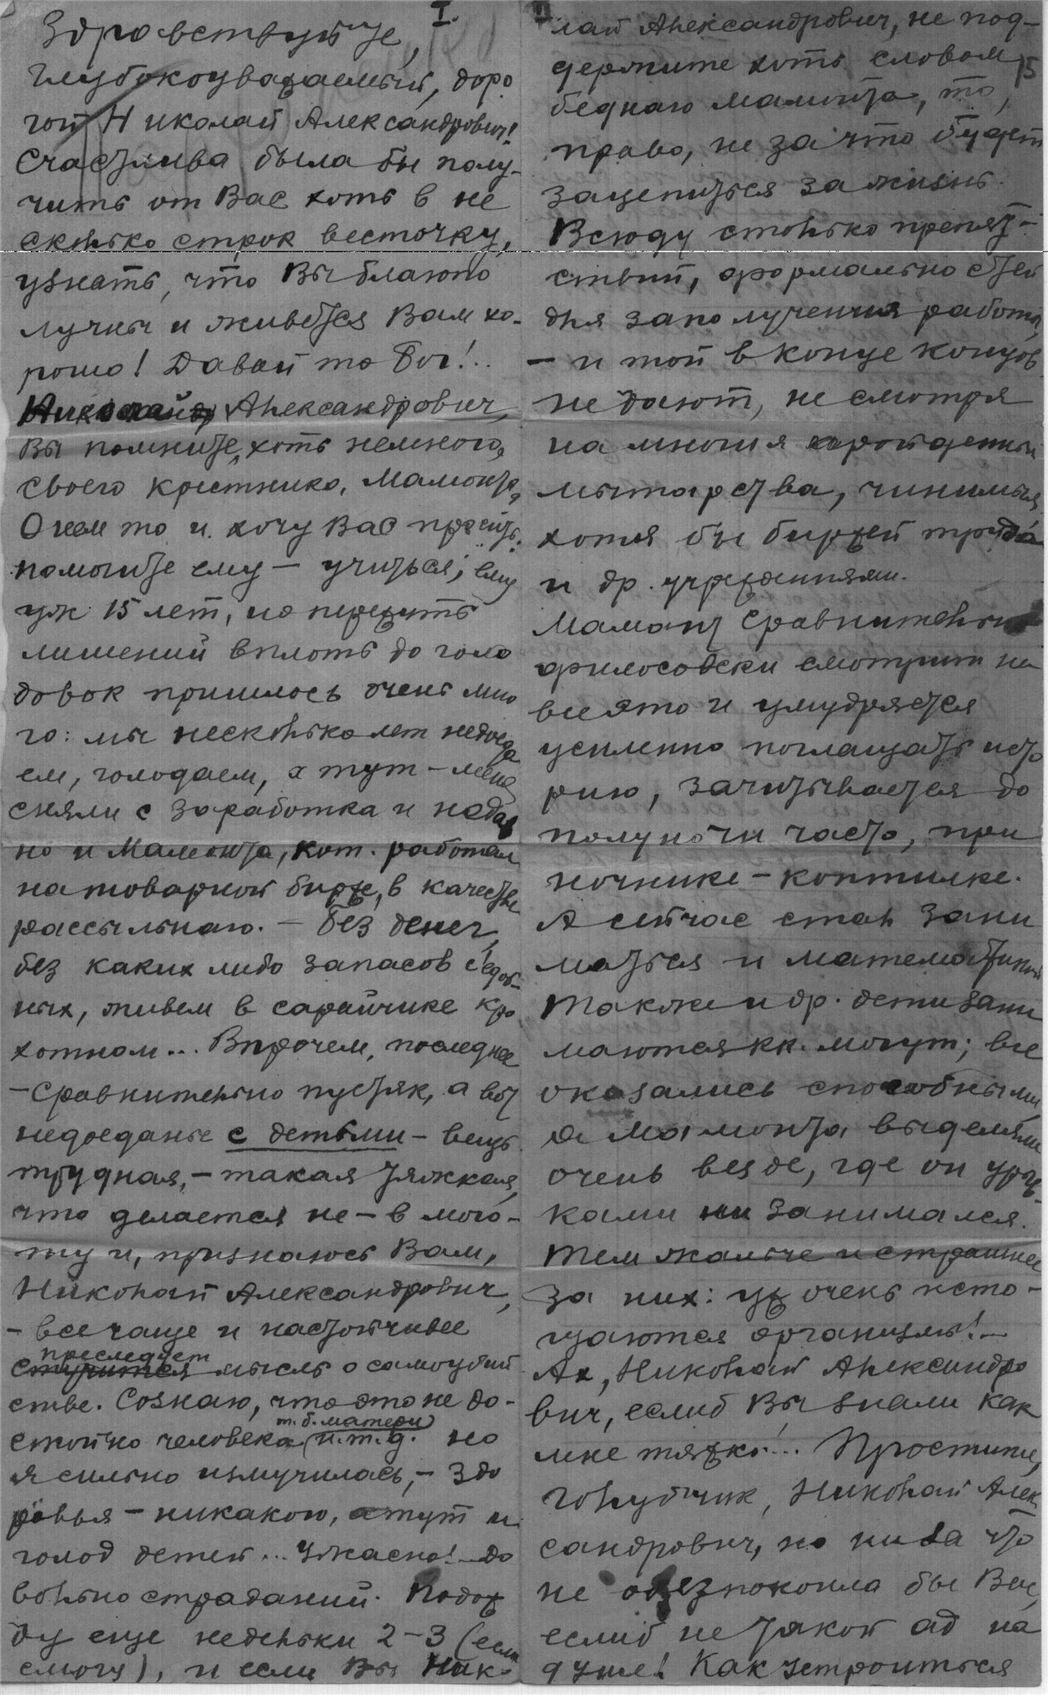 I.
Здравствуйте,
глубокоуважаемый, доро
гой Николай Александрович!
Счастлива была бы полу-
чить от Вас хоть в не
сколько строк весточку,
узнать, что Вы благопо
лучны и живется Вам хо-
рошо! Давай то Бог!..
Николай Александрович,
Вы помните, хоть немного,
своего крестника, Мамонта,
О нем то и хочу Вас просить:
помогите ему — учиться; ему
уж 15 лет, но пережить
лишений вплоть до голо
довок пришлось очень мно
го: мы несколько лет недоеда
ем, голодаем, а тут — меня
сняли с заработка и недав
но и Мамонта, кот. работал
на товарной бирже, в качестве
рассыльного. — Без денег,
без каких либо запасов съедоб-
ных, живем в сарайчике кро
хотном... Впрочем, последнее
— сравнительно пустяк, а вот
недоеданье с детьми — вещь
трудная, — такая тяжкая,
что делается не — в мого-
ту и, признаюсь Вам,
Николай Александрович,
— все чаще и настойчивее
преследует
стучится мысль о самоубий
стве. Сознаю, что это не до-
т. б. матери
стойно человека (и.т.д. но
я сильно измучилась, — здо
ровья — никакого, а тут и
голод детей... Ужасно! До
вольно страданий. Подож
ду еще недельки 2-3 (если
смогу), и если Вы Нико
II
лай Александрович, не под-
держите хоть словом
15
беднаго мамонта, то,
право, не за что будет
зацепиться за жизнь.
Всюду столько препят-
ствий, формальностей
для заполучения работы,
— и той в конце концов
не дают, не смотря
на многия пройденныя
мытарства, чинимыя
хотя бы биржей труда
и др. учреждениями.
Мамонт сравнительно
философски смотрит на
все это и умудряется
усиленно поглощать исто
рию, зачитывается до
полуночи часто, при
ночнике — коптилке.
А сейчас стал зани
маться и математикой
Также и др. дети зани
маются кк. могут; все
оказались способными,
а Мамонта выделяли
очень везде, где он уро-
ками ни занимался.
Тем жальче и страшнее
за них: уж очень исто-
щаются организмы! —
Ах, Николай Александро
вич, еслиб Вы знали как
мне тяжко!... Простите,
голубчик, Николай Алек
сандрович, но ни за что
не обезпокоила бы Вас,
еслиб не такой ад на
душе! Как устроиться